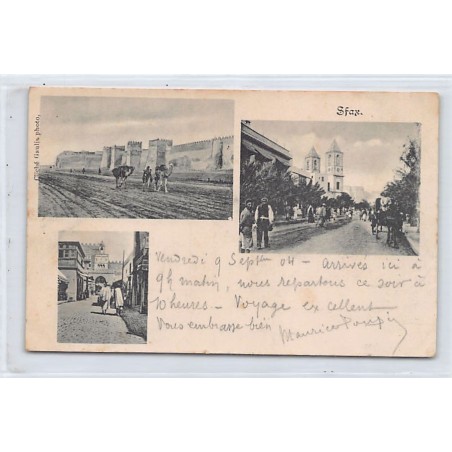 Sfax.
Cliché Gaulis photo.
Vendredi 9 Sept 04 - Arrivés ici à
9h matin, nous repartons ce soir à
10 heures - Voyage excellent
Vous embrasse bien
Maurice